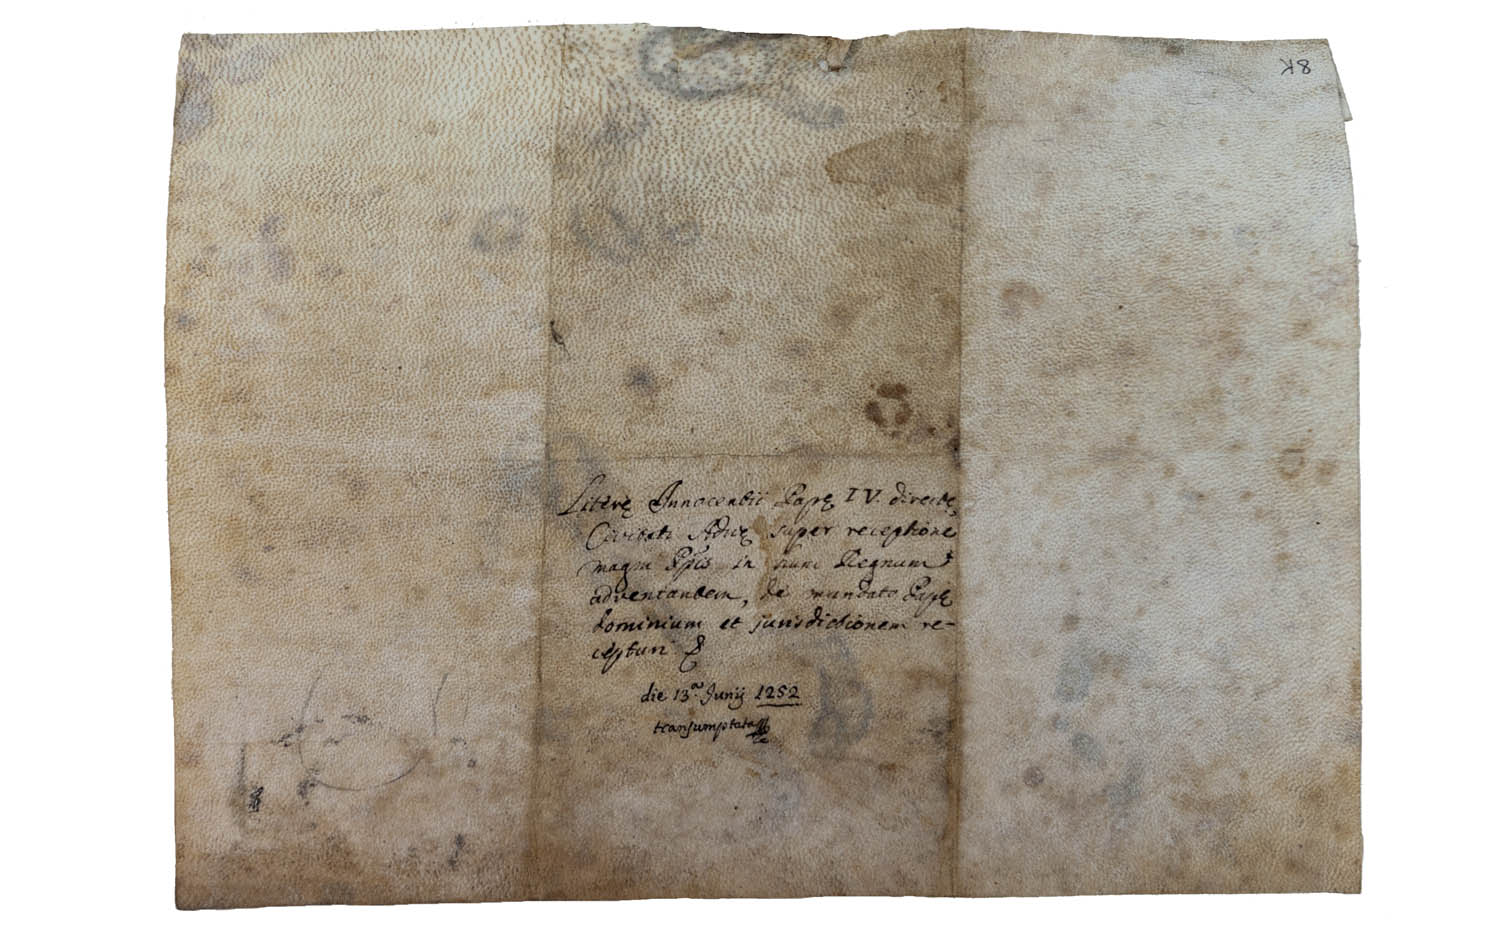 8K
Literę Innocentii Papę IV. directę,
Civitati super receptione
magni in hunc Regnum
adventantem, de mandato Papę
dominium et jurisdictionem re-
cepturi &
die 13ª. Junij 1252
transumptata